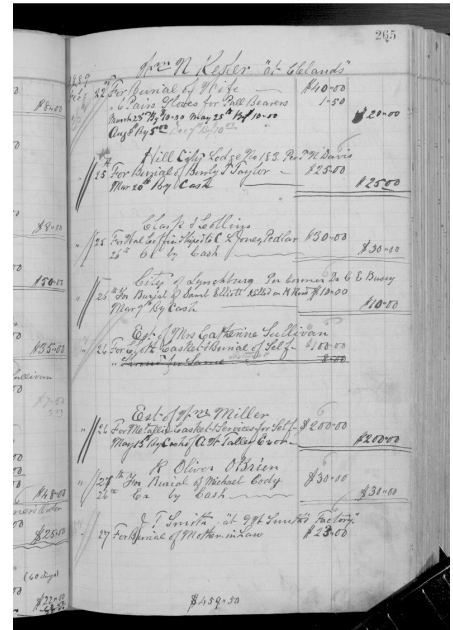 265
Wm N Kesler "at Clelands"
1889
22 For Burial of Wife $40-00
" 6 Pairs Gloves for Pall Bearers 1-50
March 25th By 10-00 May 25th By 10-00 $20-00
Aug By 5 00
Hill City Lodge No 183 Per N Davis
25 For Burial of Taylor $25-00
Mar 20th By Cash $25.00
Clark & Collins
25 Jones Pedlar $30-00
26th Cr by Cash $30-00
City of Lynchburg Per Coroner Dr C E Busey
26th For Burial of Saml Elliott Killed on R Road $10-00
Mar By Cash $10-00
Est of Mrs Catherine Sullivan
26 For Cloth Casket & Burial of Self $100-00
for Same
Est of Wm Miller
26 For Metallic Casket & Services for Self $200-00
May 15th By Cash of $200-00
R Oliver O'Brien
28th For Burial of Michael Cody $30-00
26th Cr by Cash $30-00
J T Smith, at Smiths Factory
27 For Burial of Mother in Law $23-00
$459-50
$8-00
$8-00
$50-00
$35-00
Sullivan
$48-00
$25-00
(60 days)